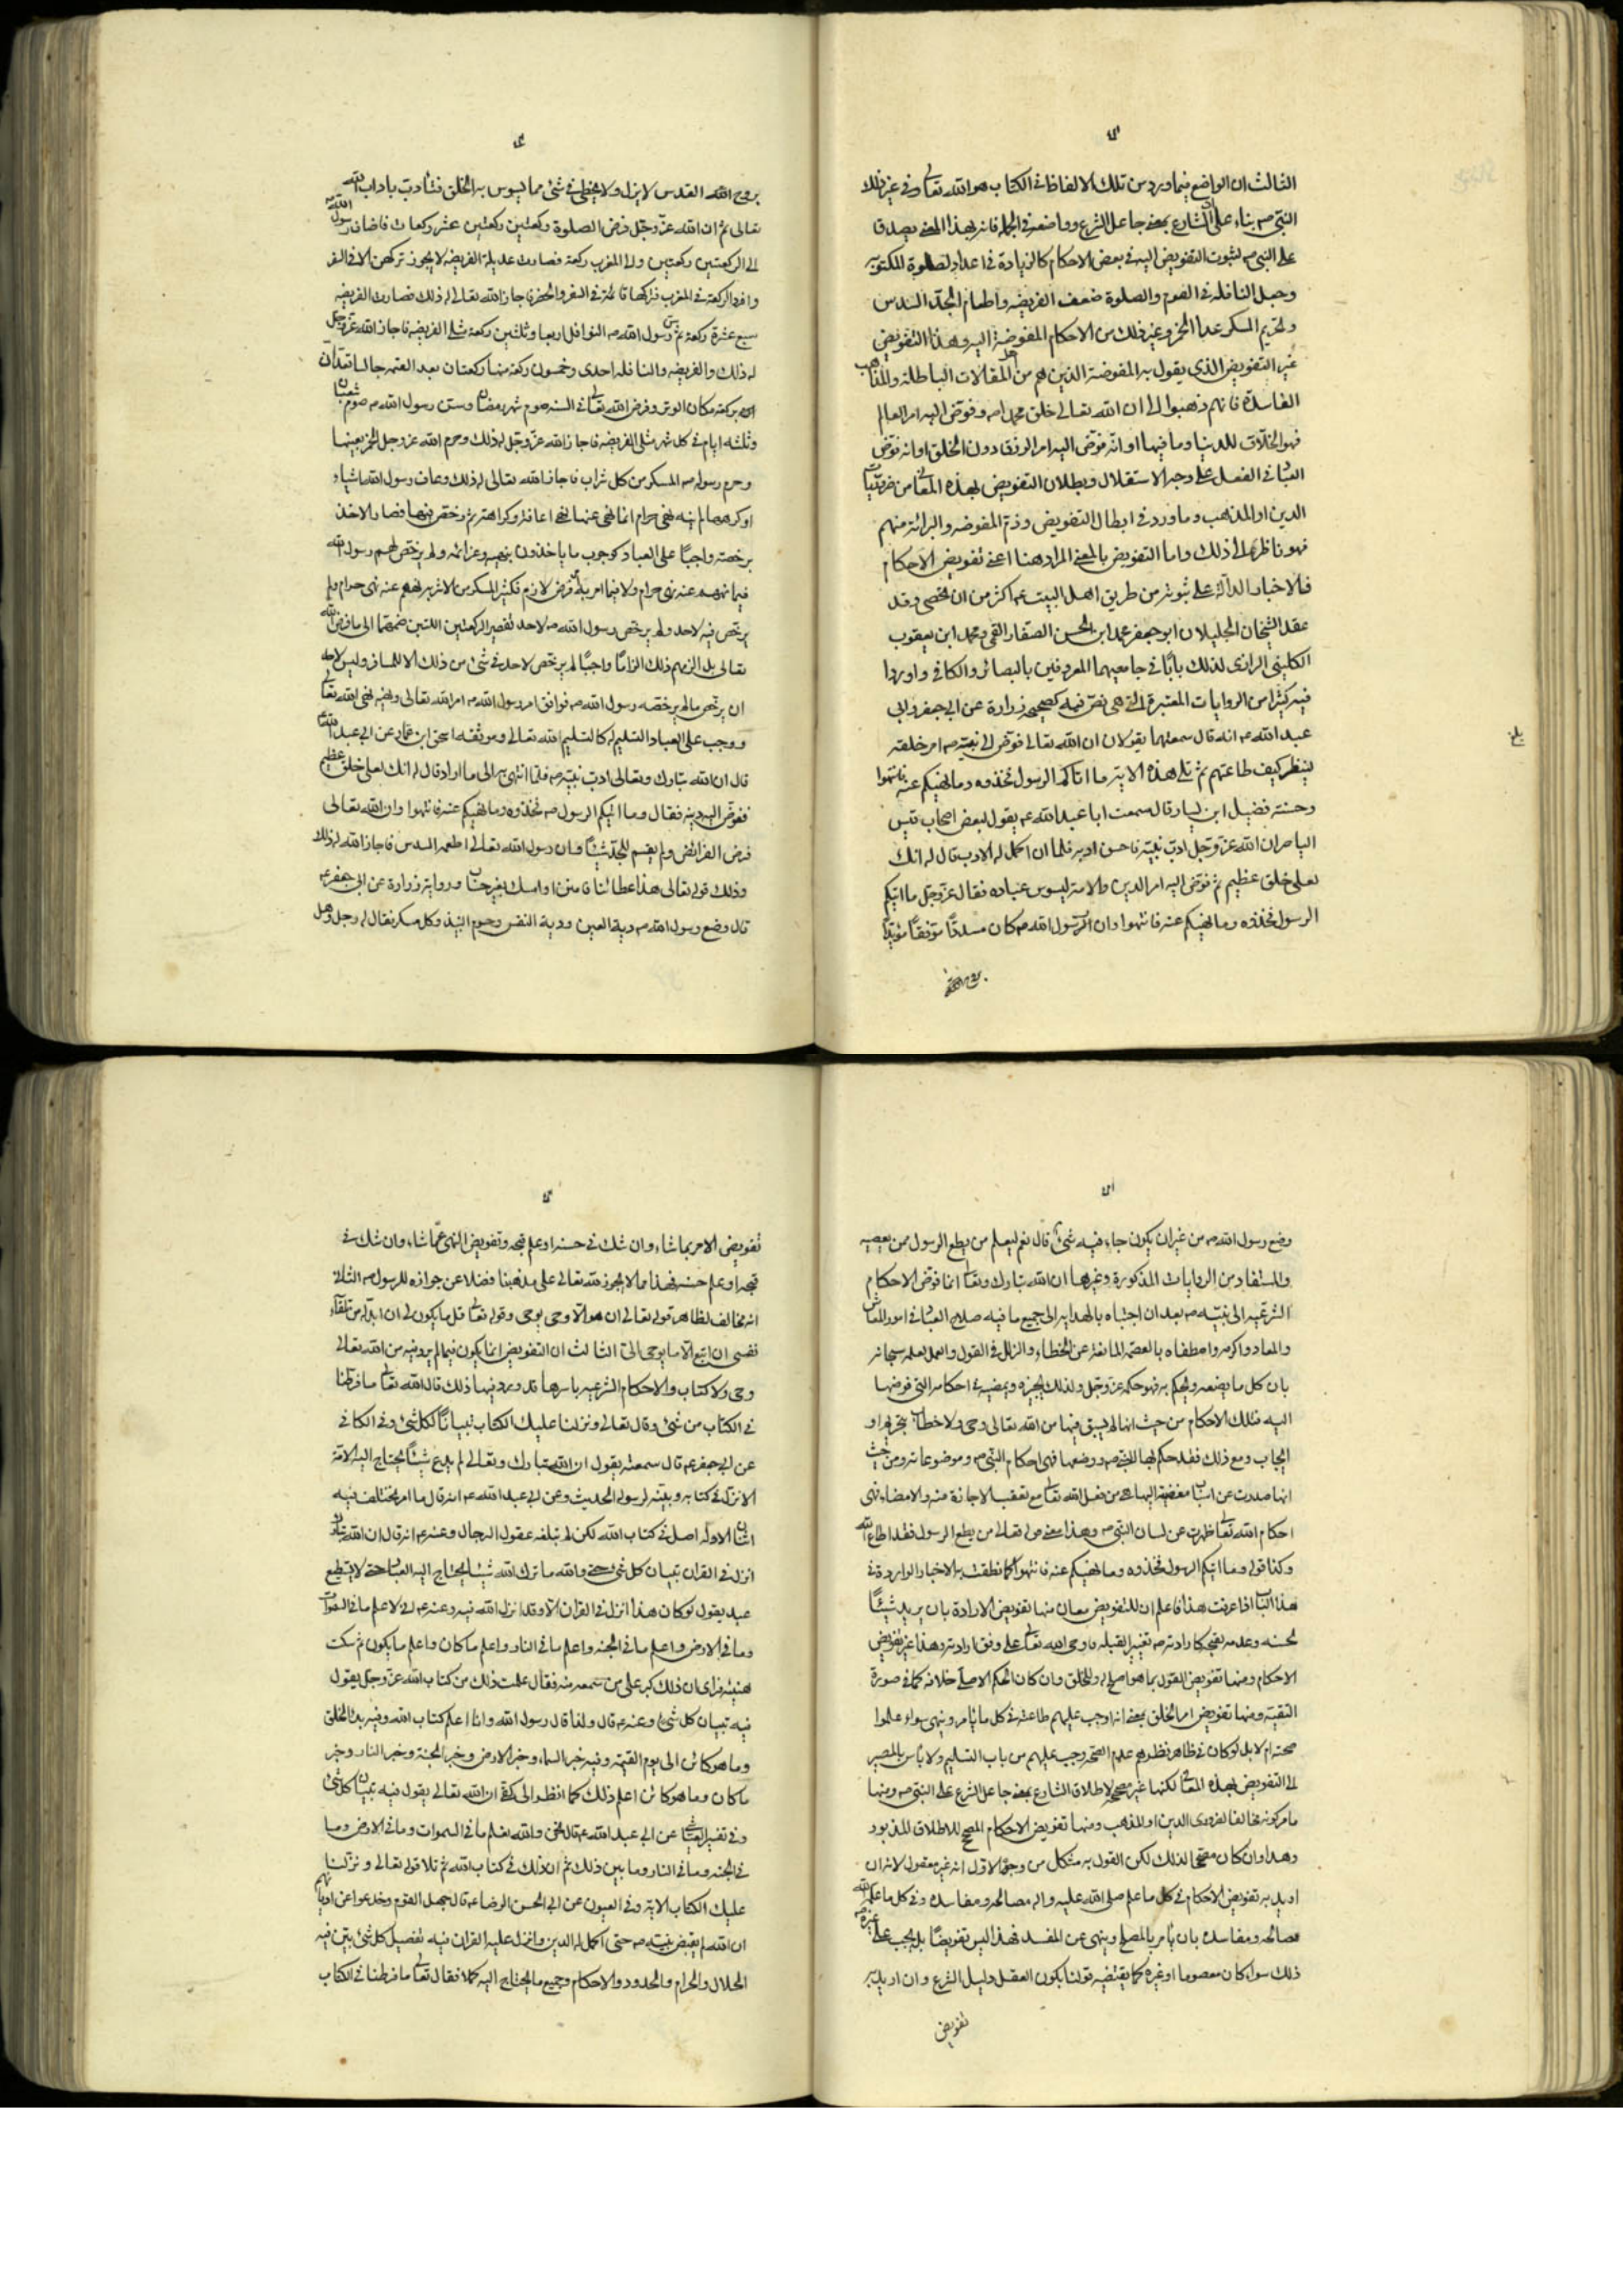 الثالث ان الواضع فيما ورد من تلك الالفاظ في الكتاب هو الله تعالى وفي غير ذلك
النبي ص بناء على ان الشارع بمعنى جاعل الشرع وواضعه في الجملة فانه بهذا المعنى يصدق
على النبي ص لثبوت التفويض اليه في بعض الاحكام كالزيادة في اعداد الصلوة المكتوبة
وجعل النافلة في الصوم والصلوة ضعف الفريضه واطعام الجد السدس
وتحريم المسكر عدا الخمر وغير ذلك من الاحكام المفوضة اليه وهذا التفويض
غير التفويض الذى يقول به المفوضة الذين هم من اهل المقالات الباطلة والمذاهب
الفاسدة فانهم ذهبوا الى ان الله تعالى خلق محمدا ص وفوّض اليه امر العالم
فهو الخلاق للدنيا وما فيها او انه فوّض اليه امر الرزق دون الخلق او انه فوّض
العباد في الفعل على وجه الاستقلال وبطلان التفويض بهذه المعاني من ضروريات
الدين او المذهب وما ورد في ابطال التفويض وذم المفوضه والبرائة منهم
فهو ناظر الى ذلك واما التفويض بالمعنى المراد هنا اعني تفويض الاحكام
فالاخبار الدالة على ثبوته من طريق اهل البيت ع اكثر من ان تحصى وقد
عقد الشيخان الجليلان ابو جعفر محمد ابن الحسن الصفار القمي ومحمد ابن يعقوب
الكليني الرازى لذلك بابًا في جامعيهما المعروفين بالبصائر والكافي واوردا
فيه كثيرا من الروايات المعتبرة التي هي نص فيه كصحيحة زرارة عن ابي جعفر وابي
عبد الله ع انه قال سمعتهما يقولان ان الله تعالى فوّض الى نبيه ص امر خلقه
لينظر كيف طاعتهم ثم تلى هذه الاية ما اتاكم الرسول فخذوه وما نهيكم عنه فانتهوا
وحسنة فضيل ابن يسار قال سمعت ابا عبد الله ع يقول لبعض اصحاب قيس
الماصر ان الله عزّ وجلّ ادب نبيه فاحسن ادبه فلما ان اكمل له الادب قال له انك
لعلى خلق عظيم ثم فوّض اليه امر الدين والامة ليسوس عباده فقال عزّ وجلّ ما اتيكم
الرسول فخذوه وما نهيكم عنه فانتهوا وان الرسول الله ص كان مسددًا موفقًا مؤيدًا
بروح القدس
بروح الله القدس لا يزل ولا يخطئ في شئ مما يسوس به الخلق فتادب باداب الله
تعالى ثم ان الله عزّ وجلّ فرض الصلوة ركعتين ركعتين عشر ركعات فاضاف رسول الله
الى الركعتين ركعتين والى المغرب ركعة فصارت عديلة الفريضه لا يجوز تركهن الا في السفر
وافرد الركعة في المغرب فتركها قائمة في السفر والحضر فاجاز الله تعالى له ذلك فصارت الفريضه
سبع عشرة ركعة ثم سنّ رسول الله ص النوافل اربعا وثلثين ركعة مثلي الفريضه فاجاز الله عزّ وجلّ
له ذلك والفريضه والنافله احدى وخمسون ركعة منها ركعتان بعد العتمه جالسا تعدان
بركعة مكان الوتر وفرض الله تعالى في السنه صوم شهر رمضان وسن رسول الله ص صوم شعبان
وثلثه ايام في كل شهر مثلي الفريضه فاجاز الله عزّ وجلّ له ذلك وحرم الله عز وجل الخمر بعينها
وحرم رسوله ص المسكر من كل شراب فاجاز الله تعالى له ذلك وعاف رسول الله اشياء
وكرهها لم ينه نهي حرام انما نهى عنها نهي اعافة وكراهة ثم رخص فيها فصار الاخذ
برخصته واجبًا على العباد كوجوب ما ياخذون بنهيه وعزائمه ولم يرخص لهم رسول الله
فيما نهيهم عنه نهي حرام ولا فيما امر به فرض لازم فكثير المسكر من الاشربه نهيهم عنه نهى حرام ولم
يرخص فيه لاحد ولم يرخص رسول الله ص لاحد تقصير الركعتين اللتين ضمهما الى ما فرض الله
تعالى بل الزمهم ذلك الزامًا واجبًا لم يرخص لاحد في شئ من ذلك الا للمسافر وليس لاحد
ان يرخص ما لم يرخصه رسول الله ص فوافق امر رسول الله ص امر الله تعالى ونهيه نهى الله تعالى
ووجب على العباد التسليم له كالتسليم لله تعالى وموثقه اسحق ابن عمار عن ابي عبد الله
قال ان الله تبارك وتعالى ادب نبيه ص فلما انتهى به الى ما اراد قال له انك لعلى خلق عظيم
ففوّض اليه دينه فقال وما اتيكم الرسول ص فخذوه وما نهيكم عنه فانتهوا وان الله تعالى
فرض الفرائض ولم يقسم للجد شيئًا وان رسول الله تعالى اطعمه السدس فاجاز الله له ذلك
وذلك قوله تعالى هذا عطائنا فامنن او امسك بغير حساب ورواية زرارة عن ابي جعفر ع
قال وضع رسول الله ص دية العين ودية النفس وحرم النبيذ وكل مسكر فقال له رجل وهل
وضع رسول الله ص من غير ان يكون جاء فيه شئ قال نعم ليعلم من يطع الرسول ممن يعصيه
والمستفاد من الروايات المذكورة وغيرها ان الله تبارك وتعالى انما فوّض الاحكام
الشرعيه الى نبيه ص بعد ان اجتباه بالهداية الى جميع ما فيه صلاح العباد في امور المعاش
والمعاد واكرمه واصطفاه بالعصمة المانعة عن الخطاء والزلل في القول والعمل لعلمه سبحانه
بان كل ما يضعه ويحكم به فهو حكمه عزّ وجلّ ولذلك يجيزه ويمضيه في احكامه التي فوضها
اليه فتلك الاحكام من حيث انها لم يسبق فيها من الله تعالى وحي ولا خطاب بتحريم او
ايجاب ومع ذلك فقد حكم بها النبي ص ووضعها فهي احكام النبي ص وموضوعاته ومن حيث
انها صدرت عن اسباب مفضية اليها هي من فعل الله تعالى مع تعقب الاجازة منه والامضاء فهي
احكام الله تعالى ظهرت عن لسان النبي ص وهذا معنى قوله تعالى من يطع الرسول فقد اطاع الله
وكذا قوله وما اتيكم الرسول فخذوه وما نهيكم عنه فانتهوا كما نطقت به الاخبار الواردة في
هذا الباب اذا عرفت هذا فاعلم ان للتفويض معان منها تفويض الارادة بان يريد شيئًا
لحسنه وعدمه لقبحه كارادته ص تغيير القبله فاوحى الله تعالى على وفق ارادته وهذا غير تفويض
الاحكام ومنها تفويض القول بما هو اصلح له وللخلق وان كان الحكم الاصلي خلافه كما في صورة
التقية ومنها تفويض امر الخلق بمعنى انه اوجب عليهم طاعته في كل ما يامر وينهى سواء علموا
صحته ام لا بل لو كان في ظاهر نظرهم عدم الصحة وجب عليهم من باب التسليم ولا باس بالمصير
الى التفويض بهذه المعاني لكنها غير مصححة لاطلاق الشارع بمعنى جاعل الشرع على النبي ص ومنها
ما مر كونه مخالفا لضرورى الدين او المذهب ومنها تفويض الاحكام المصحح للاطلاق المذبور
وهذا وان كان مصححًا لذلك لكن القول به مشكل من وجوه الاول انه غير معقول لانه ان
اريد به تفويض الاحكام في كل ما علم صلى الله عليه واله مصالحه ومفاسده وفي كل ما علمه الله
مصالحه ومفاسده بان يامر بالمصلح وينهى عن المفسد فهذا ليس تفويضًا بل يجب على غيره
ذلك سواء كان معصوما او غيره كما يقتضيه قولنا بكون العقل دليل الشرع وان اريد به
تفويض
تفويض الامر بما شاء وان شك في حسنه او علم قبحه وتفويض النهي عمّا شاء وان شك في
قبحه او علم حسنه فهذا مما لا يجوز لله تعالى على مذهبنا فضلا عن جوازه للرسول ص الثاني
انه مخالف لظاهر قوله تعالى ان هو الا وحى يوحى وقوله تعالى قل ما يكون لي ان ابدله من تلقاء
نفسى ان اتبع الا ما يوحى الىّ الثالث ان التفويض انما يكون فيما لم يرد فيه من الله تعالى
وحى ولا كتاب والاحكام الشرعيه باسرها قد ورد فيها ذلك قال الله تعالى ما فرطنا
في الكتاب من شئ وقال تعالى ونزلنا عليك الكتاب تبيانًا لكل شئ وفي الكافي
عن ابي جعفر ع قال سمعته يقول ان الله تبارك وتعالى لم يدع شيئًا يحتاج اليه الامة
الا نزله في كتابه وبينه لرسوله الحديث وعن ابي عبد الله ع انه قال ما امر يختلف فيه
اثنان الا وله اصل في كتاب الله لكن لم تبلغه عقول الرجال وعنه ع انه قال ان الله تبارك
انزل في القران تبيان كل شئ حتى والله ما ترك الله شيئا يحتاج اليه العباد حتى لا يستطيع
عبد يقول لو كان هذا انزل في القران الا وقد انزل الله فيه وعنه ع اني لاعلم ما في السموات
وما في الارض واعلم ما في الجنه واعلم ما في النار واعلم ما كان واعلم ما يكون ثم سكت
هنيئه فراى ان ذلك كبر على من سمعه منه فقال علمت ذلك من كتاب الله عزّ وجلّ يقول
فيه تبيان كل شئ وعنه ع قال ولقد قال رسول الله وانا اعلم كتاب الله وفيه بدء الخلق
وما هو كائن الى يوم القيمة وفيه خبر السماء وخبر الارض وخبر الجنة وخبر النار وخبر
ما كان وما هو كائن اعلم ذلك كما انظر الى كفي ان الله تعالى يقول فيه تبيان كل شئ
وفي تفسير العياشي عن ابي عبد الله ع قال نحن والله نعلم ما في السموات وما في الارض وما
في الجنه وما في النار وما بين ذلك ثم ان ذلك في كتاب الله ثم تلا قوله تعالى ونزلنا
عليك الكتاب الاية وفي العيون عن ابي الحسن الرضا ع قال جهل القوم وخدعوا عن اديانهم
ان الله لم يقبض نبيه ص حتى اكمل له الدين وانزل عليه القران فيه تفصيل كل شئ بين فيه
الحلال والحرام والحدود والاحكام وجميع ما يحتاج اليه كملا فقال تعالى ما فرطنا في الكتاب